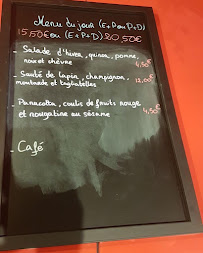 Menu du jour (E+P ou P+D)
15,50€ ou (E+P+D) 20,50€
- Salade d'hiver, quinoa, pomme,
noix et chèvre 4,50€
- Sauté de lapin, champignon,
moutarde et tagliatelles 12,00€
- Panacotta, coulis de fruits rouge
et nougatine au sésame 4,50€
- Café